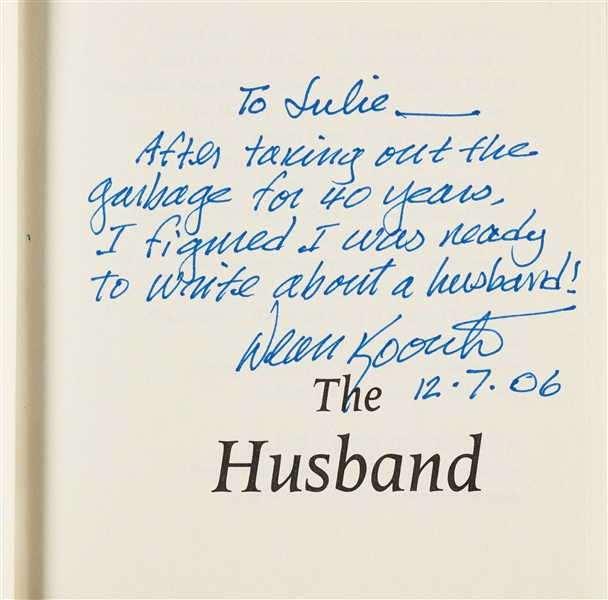 To Julie —
After taking out the
garbage for 40 years,
I figured I was ready
to write about a husband!
Dean Koontz
12.7.06
The
Husband